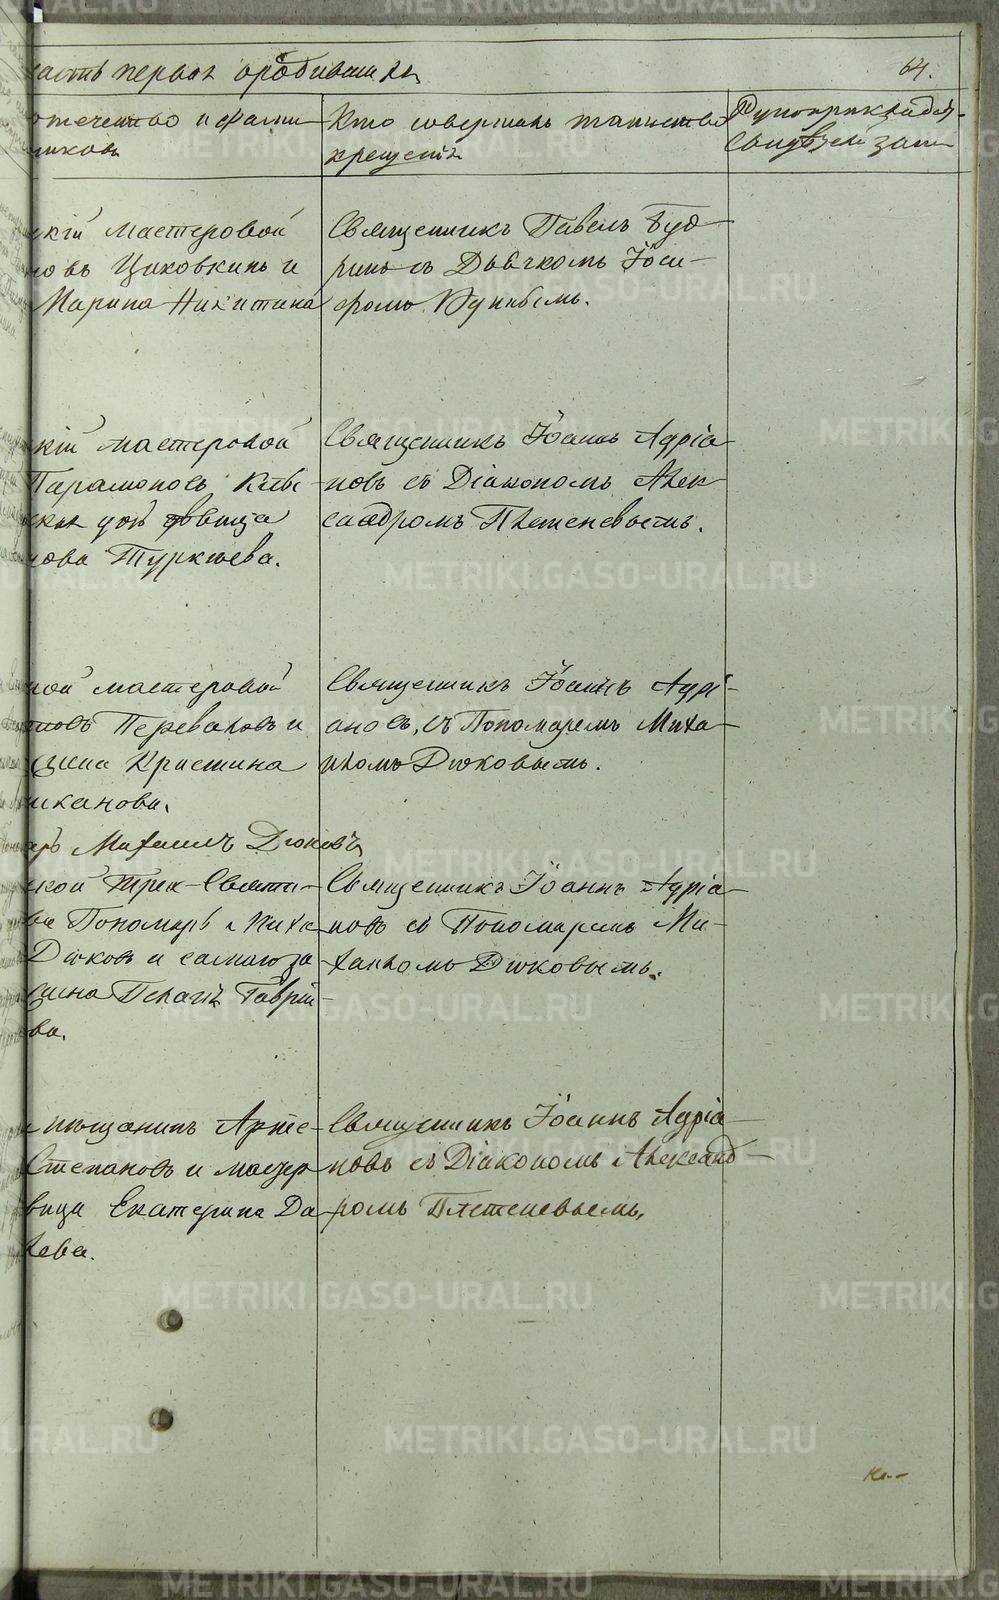 часть первая о родившихся
64.
отчество и фами-
Кто совершалъ таинство
крещенія
Рукоприклад-
кій мастеровой
овъ Цыковкинъ и
Марина Никитина
Священникъ Павелъ Буд-
ринъ съ Дьячкомъ Іоси-
фомъ
кій мастеровой
Парамоновъ
нова Туркѣева.
Священникъ Іоаннъ Адріа-
новъ съ Діакономъ Алек-
сандромъ Плетеневымъ.
ной мастеровой
ановъ Переваловъ и
Кристина
иканова.
Священникъ Іоаннъ Адрі-
ановъ, съ Пономаремъ Миха-
иломъ Дюковымъ.
арь Михаилъ Дюковъ
ской Трех-Святи-
Пономарь Миха
Дюковъ и
Гаврии-
ва.
Священникъ Іоаннъ Адріа-
новъ съ Пономаремъ Ми-
хаиломъ Дюковымъ.
мѣщанинъ Арте-
Степановъ и мастер
вица Екатерина Да-
лева.
Священникъ Іоаннъ Адріа-
новъ съ Діакономъ Александ-
ромъ Плетеневымъ.
METRIKI.GASO-URAL.RU